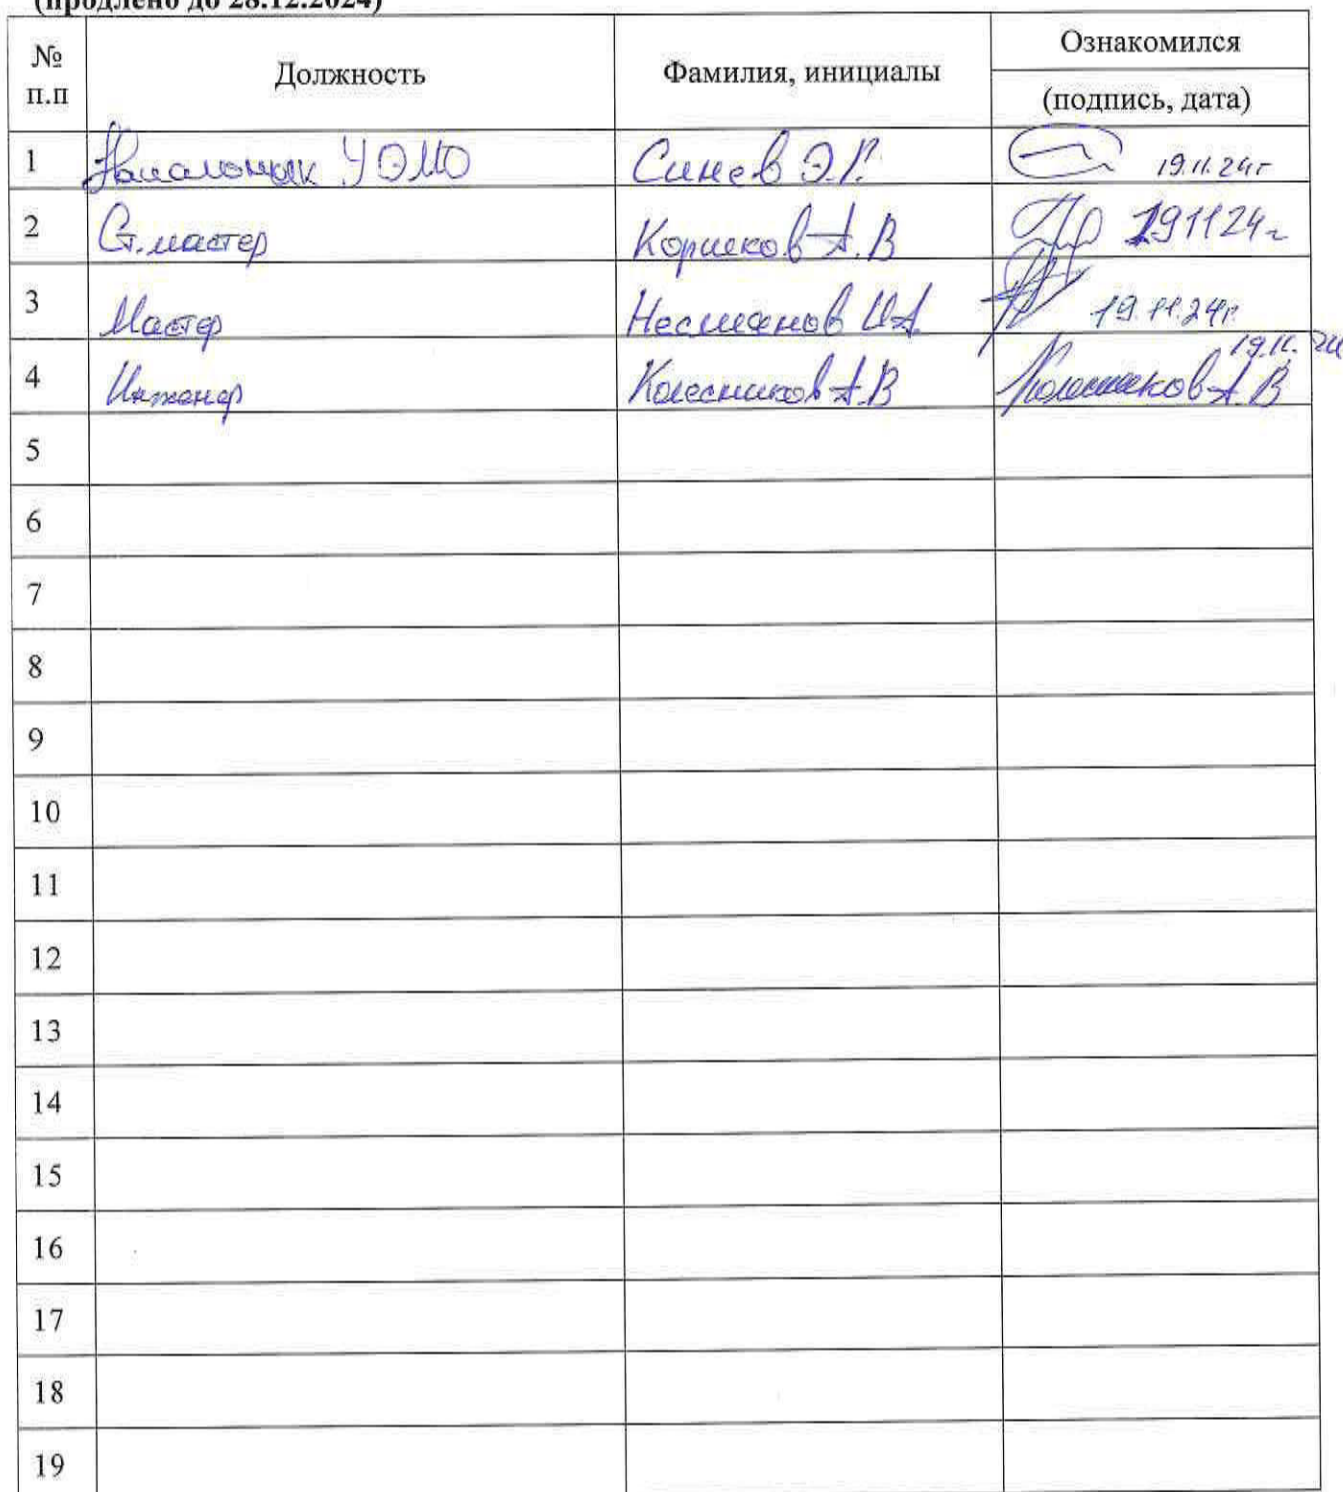 (продлено до 28.12.2024)
№ п.п Должность Фамилия, инициалы Ознакомился (подпись, дата)
1 Начальник УЭМО Синев Э.Г. 19.11.24г
2 Ст. мастер А.В 191124г
3 Мастер 19.11.24г.
4 Инженер Колесников А.В Колесников А.В 19.11.24
5
6
7
8
9
10
11
12
13
14
15
16
17
18
19